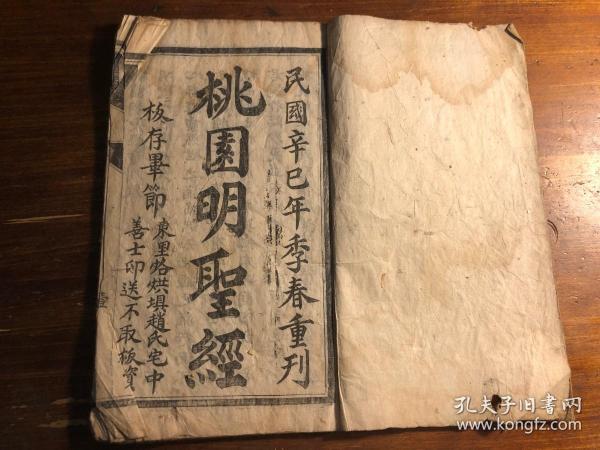 民國辛巳年季春重刊
桃園明聖經
板存畢節
東里烙烘塤趙氏宅中
善士印送不取板資
孔夫子旧书网
www.kongfz.com